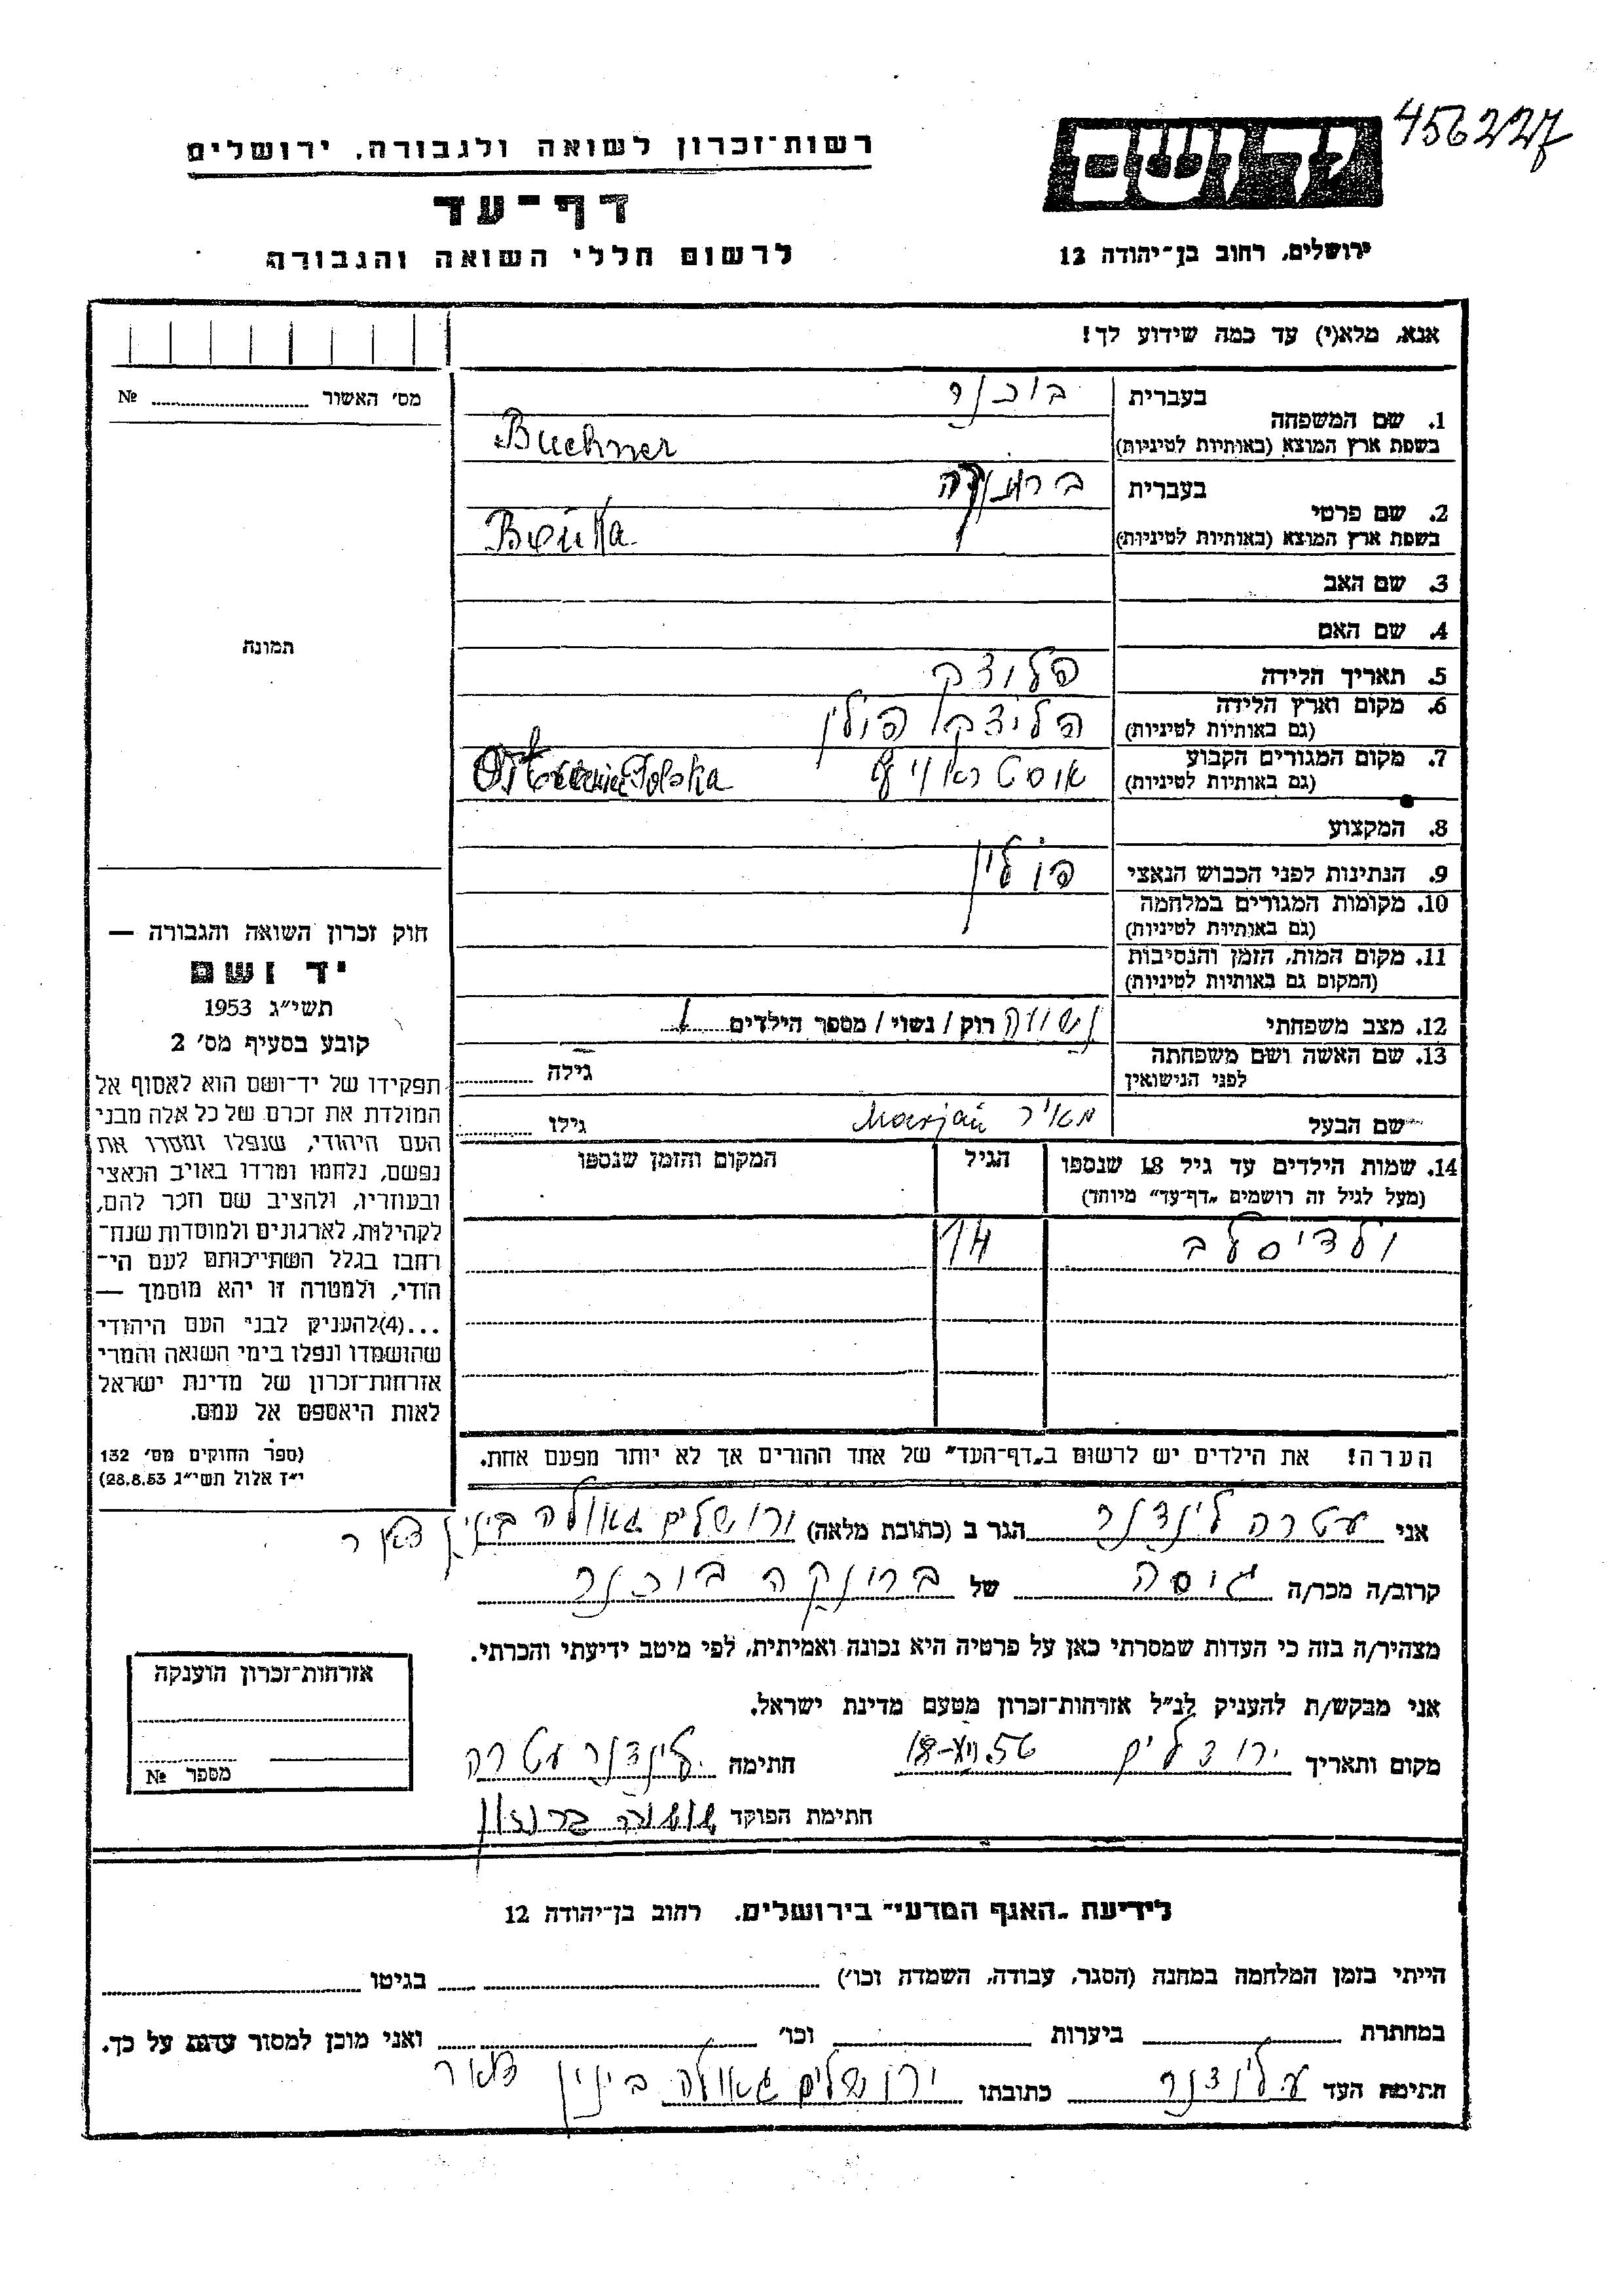 456227
רשות־זכרון לשואה ולגבורה, ירושלים
דף־עד
לרשום חללי השואה והגבורה
ירושלים, רחוב בן־יהודה 12
אנא, מלא(י) עד כמה שידוע לך!
מס' האשור № 
בעברית בוכנר
1. שם המשפחה
בשפת ארץ המוצא (באותיות לטיניות) Buchner
בעברית
2. שם פרטי
בשפת ארץ המוצא (באותיות לטיניות)
3. שם האב
4. שם האם
תמונה
5. תאריך הלידה
6. מקום וארץ הלידה פולין
(גם באותיות לטיניות)
7. מקום המגורים הקבוע Polska
(גם באותיות לטיניות)
8. המקצוע
9. הנתינות לפני הכבוש הנאצי פולין
10. מקומות המגורים במלחמה
(גם באותיות לטיניות)
11. מקום המות, הזמן והנסיבות
(המקום גם באותיות לטיניות)
12. מצב משפחתי נשואה רוק / נשוי / מספר הילדים 1
13. שם האשה ושם משפחתה גילה
לפני הנישואין
שם הבעל מאיר Marjan גילו
14. שמות הילדים עד גיל 18 שנספו הגיל המקום והזמן שנספו
(מעל לגיל זה רושמים „דף־עד" מיוחד)
ולדיסלב 14
הערה! את הילדים יש לרשום ב„דף־העד" של אחד ההורים אך לא יותר מפעם אחת.
חוק זכרון השואה והגבורה —
יד ושם
תשי״ג 1953
קובע בסעיף מס' 2
תפקידו של יד־ושם הוא לאסוף אל
המולדת את זכרם של כל אלה מבני
העם היהודי, שנפלו ומסרו את
נפשם, נלחמו ומרדו באויב הנאצי
ובעוזריו, ולהציב שם וזכר להם,
לקהילות, לארגונים ולמוסדות שנח־
רחבו בגלל השתייכותם לעם הי־
הודי, ולמטרה זו יהא מוסמך —
...(4)להעניק לבני העם היהודי
שהושמדו ונפלו בימי השואה והמרי
אזרחות־זכרון של מדינת ישראל
לאות היאספם אל עמם.
(ספר החוקים מס' 132
י״ד אלול תשי״ג 28.8.53)
אני עטרה לינדנר הגר ב (כתובת מלאה) ירושלים גאולה בינין
קרוב/ה מכר/ה גיסה של ברונקה בוכנר
מצהיר/ה בזה כי העדות שמסרתי כאן על פרטיה היא נכונה ואמיתית, לפי מיטב ידיעתי והכרתי.
אני מבקש/ת להעניק לנ״ל אזרחות־זכרון מטעם מדינת ישראל.
מקום ותאריך ירושלים חתימה לינדנר עטרה
חתימת הפוקד
אזרחות־זכרון הוענקה
מספר №
לידיעת „האגף המדעי" בירושלים, רחוב בן־יהודה 12
הייתי בזמן המלחמה במחנה (הסגר, עבודה, השמדה וכו') בגיטו
במחתרת ביערות וכו' ואני מוכן למסור עדות על כך.
חתימת העד ע. לינדנר כתובתו ירושלים גאולה בינין